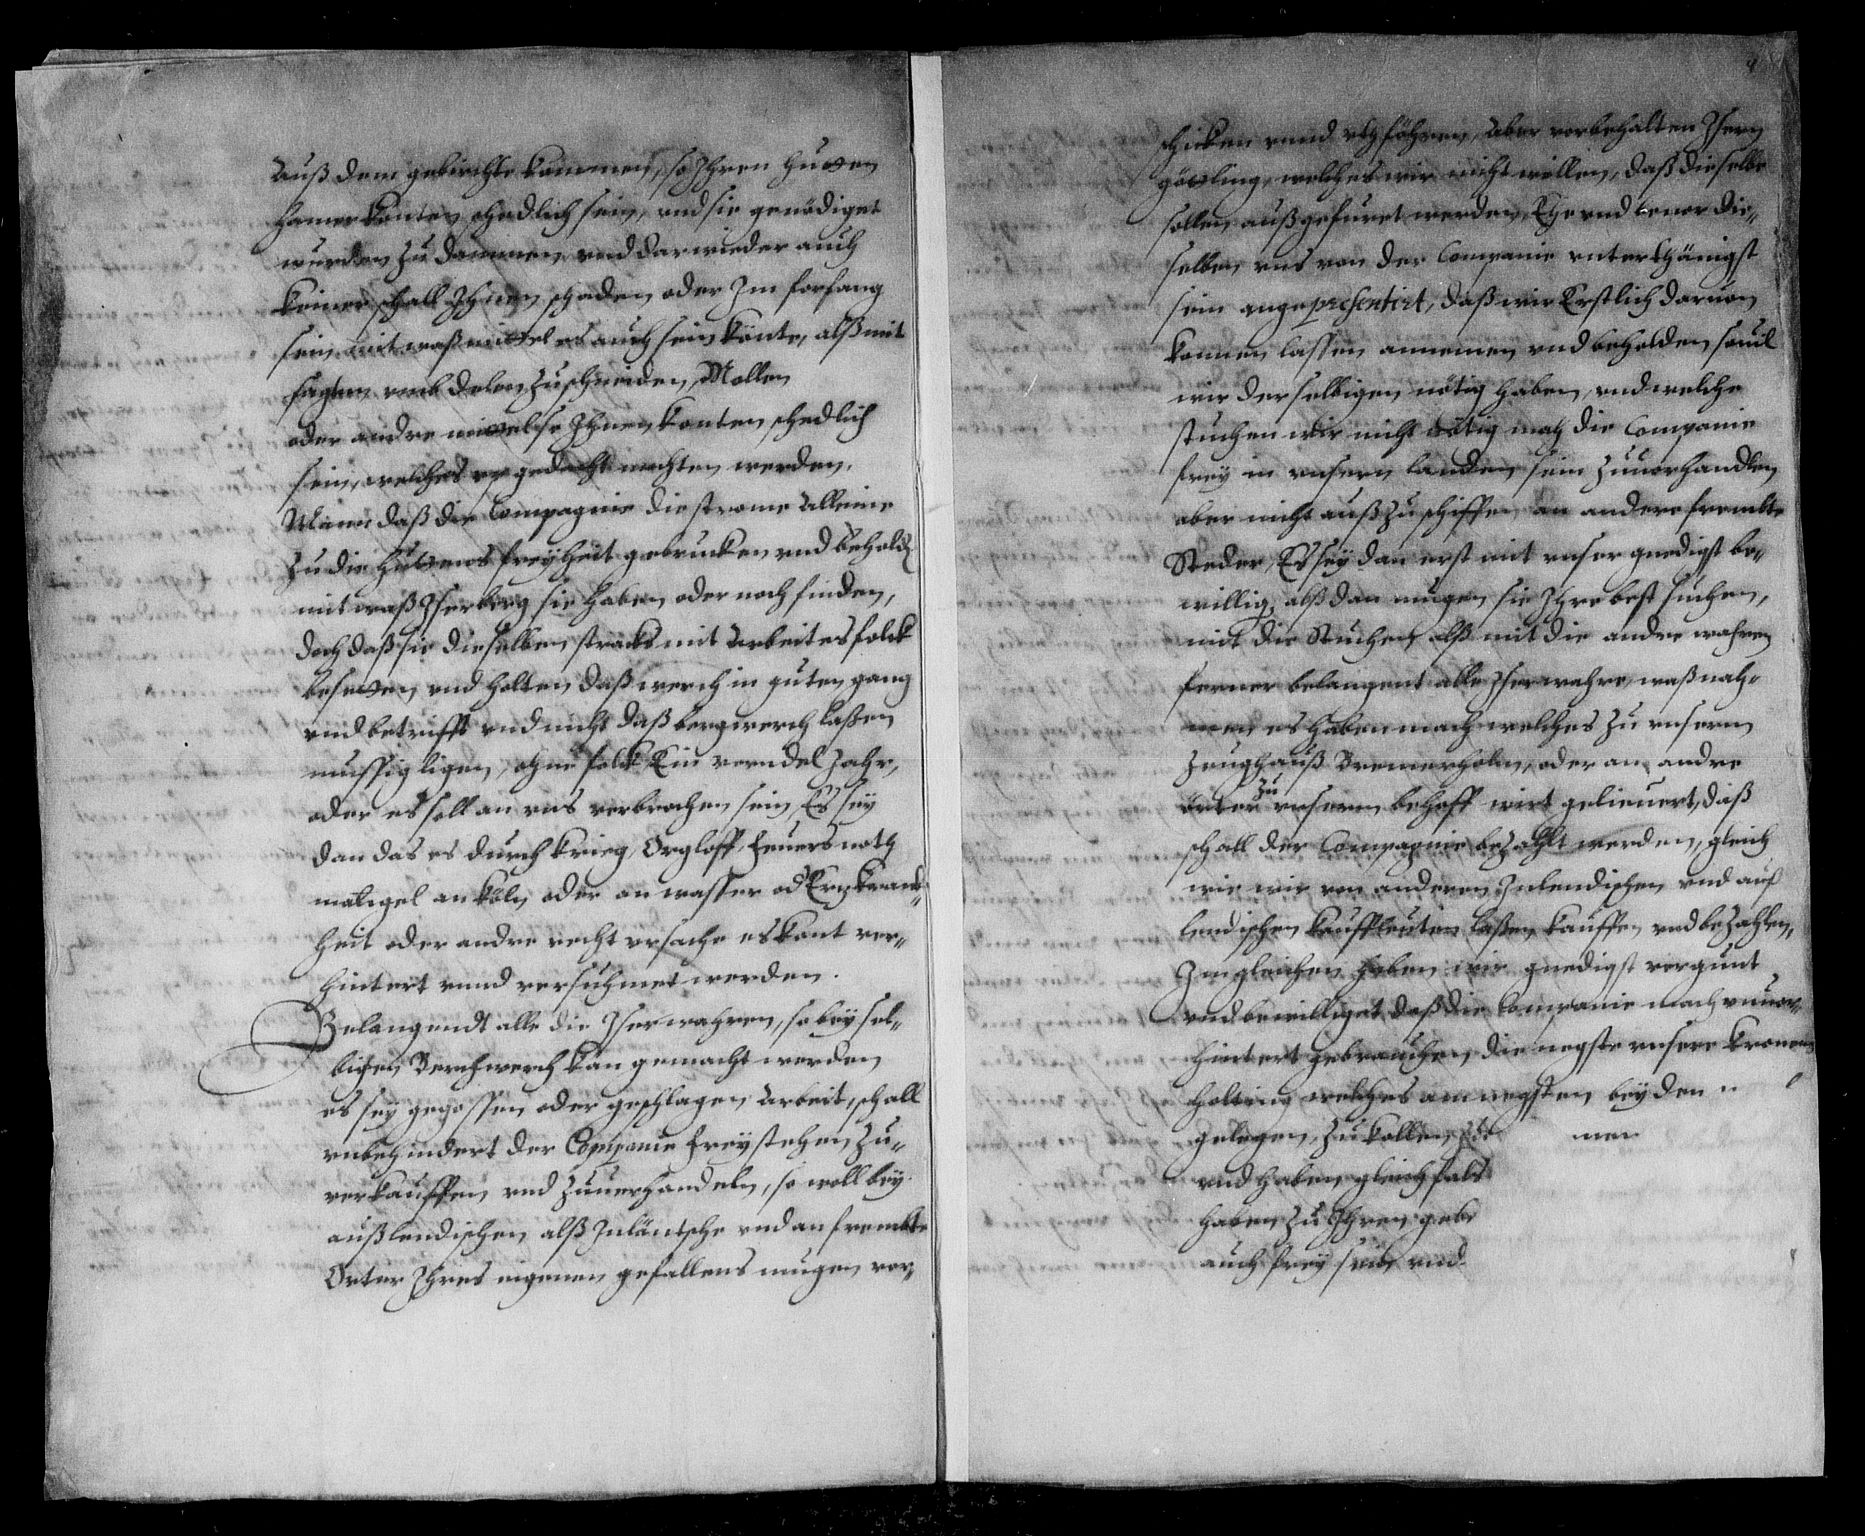 Auß dem gebirchte kommen, so Ihren hutten
hamer konten schedlich sein, vnd sie genödiget
wurden zu dammen, vnd darwieder auch
keiner schall Ihnen schaden oder Im forfang
sein mit waß mittel es auch sein könte, alß mit
sagten vmb delen zu schneiden, Mollen
oder andre mittel so Ihnen konten schedlich
sein, welches gedacht mochten werden.
Wenn daß die Compagnie die strome Alleine
zu die huttens freyheit gebrucken vnd behold
mit waß Iserberg sie haben oder noch finden,
doch daß sie dieselben stracks mit Arbeites folck
besetten vnd holten daß werch in guten gang
vnd betrifft vnd nicht daß bergwerch laßen
mussig ligen, ohne folck Ein verndel Jahr,
oder es soll an vns verbrochen sein, Es sey
dan das es durch krieg, Orgloff, feuers noth
mangel an köln, oder an wasser od Erzkranck-
heit oder andre recht vrsache es kont ver-
hintert vnnd versuhmet werden.
Belangendt alle die Iser wahren, so bey sel-
bigen Berchwerch kan gemacht werden
es sey gegossen oder geschlagen Arbeit, schall
vnbehindert der Companie frey stehen zu-
verkauffen vnd zuuerhandeln, so woll bey
außlendischen alß Inläntsche vnd an frembte
Orter Ihres eigenen gefallens mugen ver-
schicken vnnd vthföhren, Aber vorbehalten Isern
götling, welches wir nicht willen, daß dieselbe
sollen außgefuret werden, Ehe vnd beuor die-
selben vns von der Companie vnterthänigst
sein angepresentirt, daß wir Erstlich daruon
konnen lassen annemen vnd beholden souil
wir derselbigen nötig haben, vnd welche
stuchen wir nicht nötig mach die Companie
frey in vnsern landen sein zuuorhandlen
aber nicht auß zu schiffen an andere frembte
Steder, Es sey dan erst mit vnser gnedigst be-
willig, alß dan mugen sie Ihre best suchen,
mit die Stuchen alß mit die andre wahren
ferner belangent alle Iser wahre, waß nah-
men es haben mach welches zu vnserm
Zeughauß Bremerholm, oder an andre
örter zu vnserm behoff wirt gelieuert, daß
schall der Compagnie bezahlt werden, gleich
wie wir von anderen Inlendischen vnd auß
lendischen kauffleuten laßen kauffen vnd bezahlen.
Imgleichen haben wir gnedigst vergunt
vnd bewilliget daß die Companie mach vnuor-
hintert gebrauchen die negste vnsere kronen
holting welches am negsten bey den
gelegen, zu kollen
men
vnd haben gleichfals
haben zu Ihren gebr
auch frey sein vnd